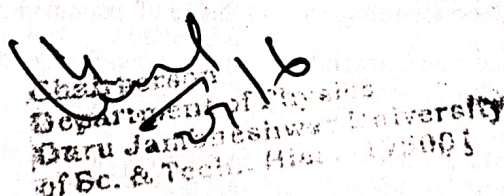 Chairperson
Department of Physics
Guru Jambheshwar University
of Sc. & Tech., Hisar 125001